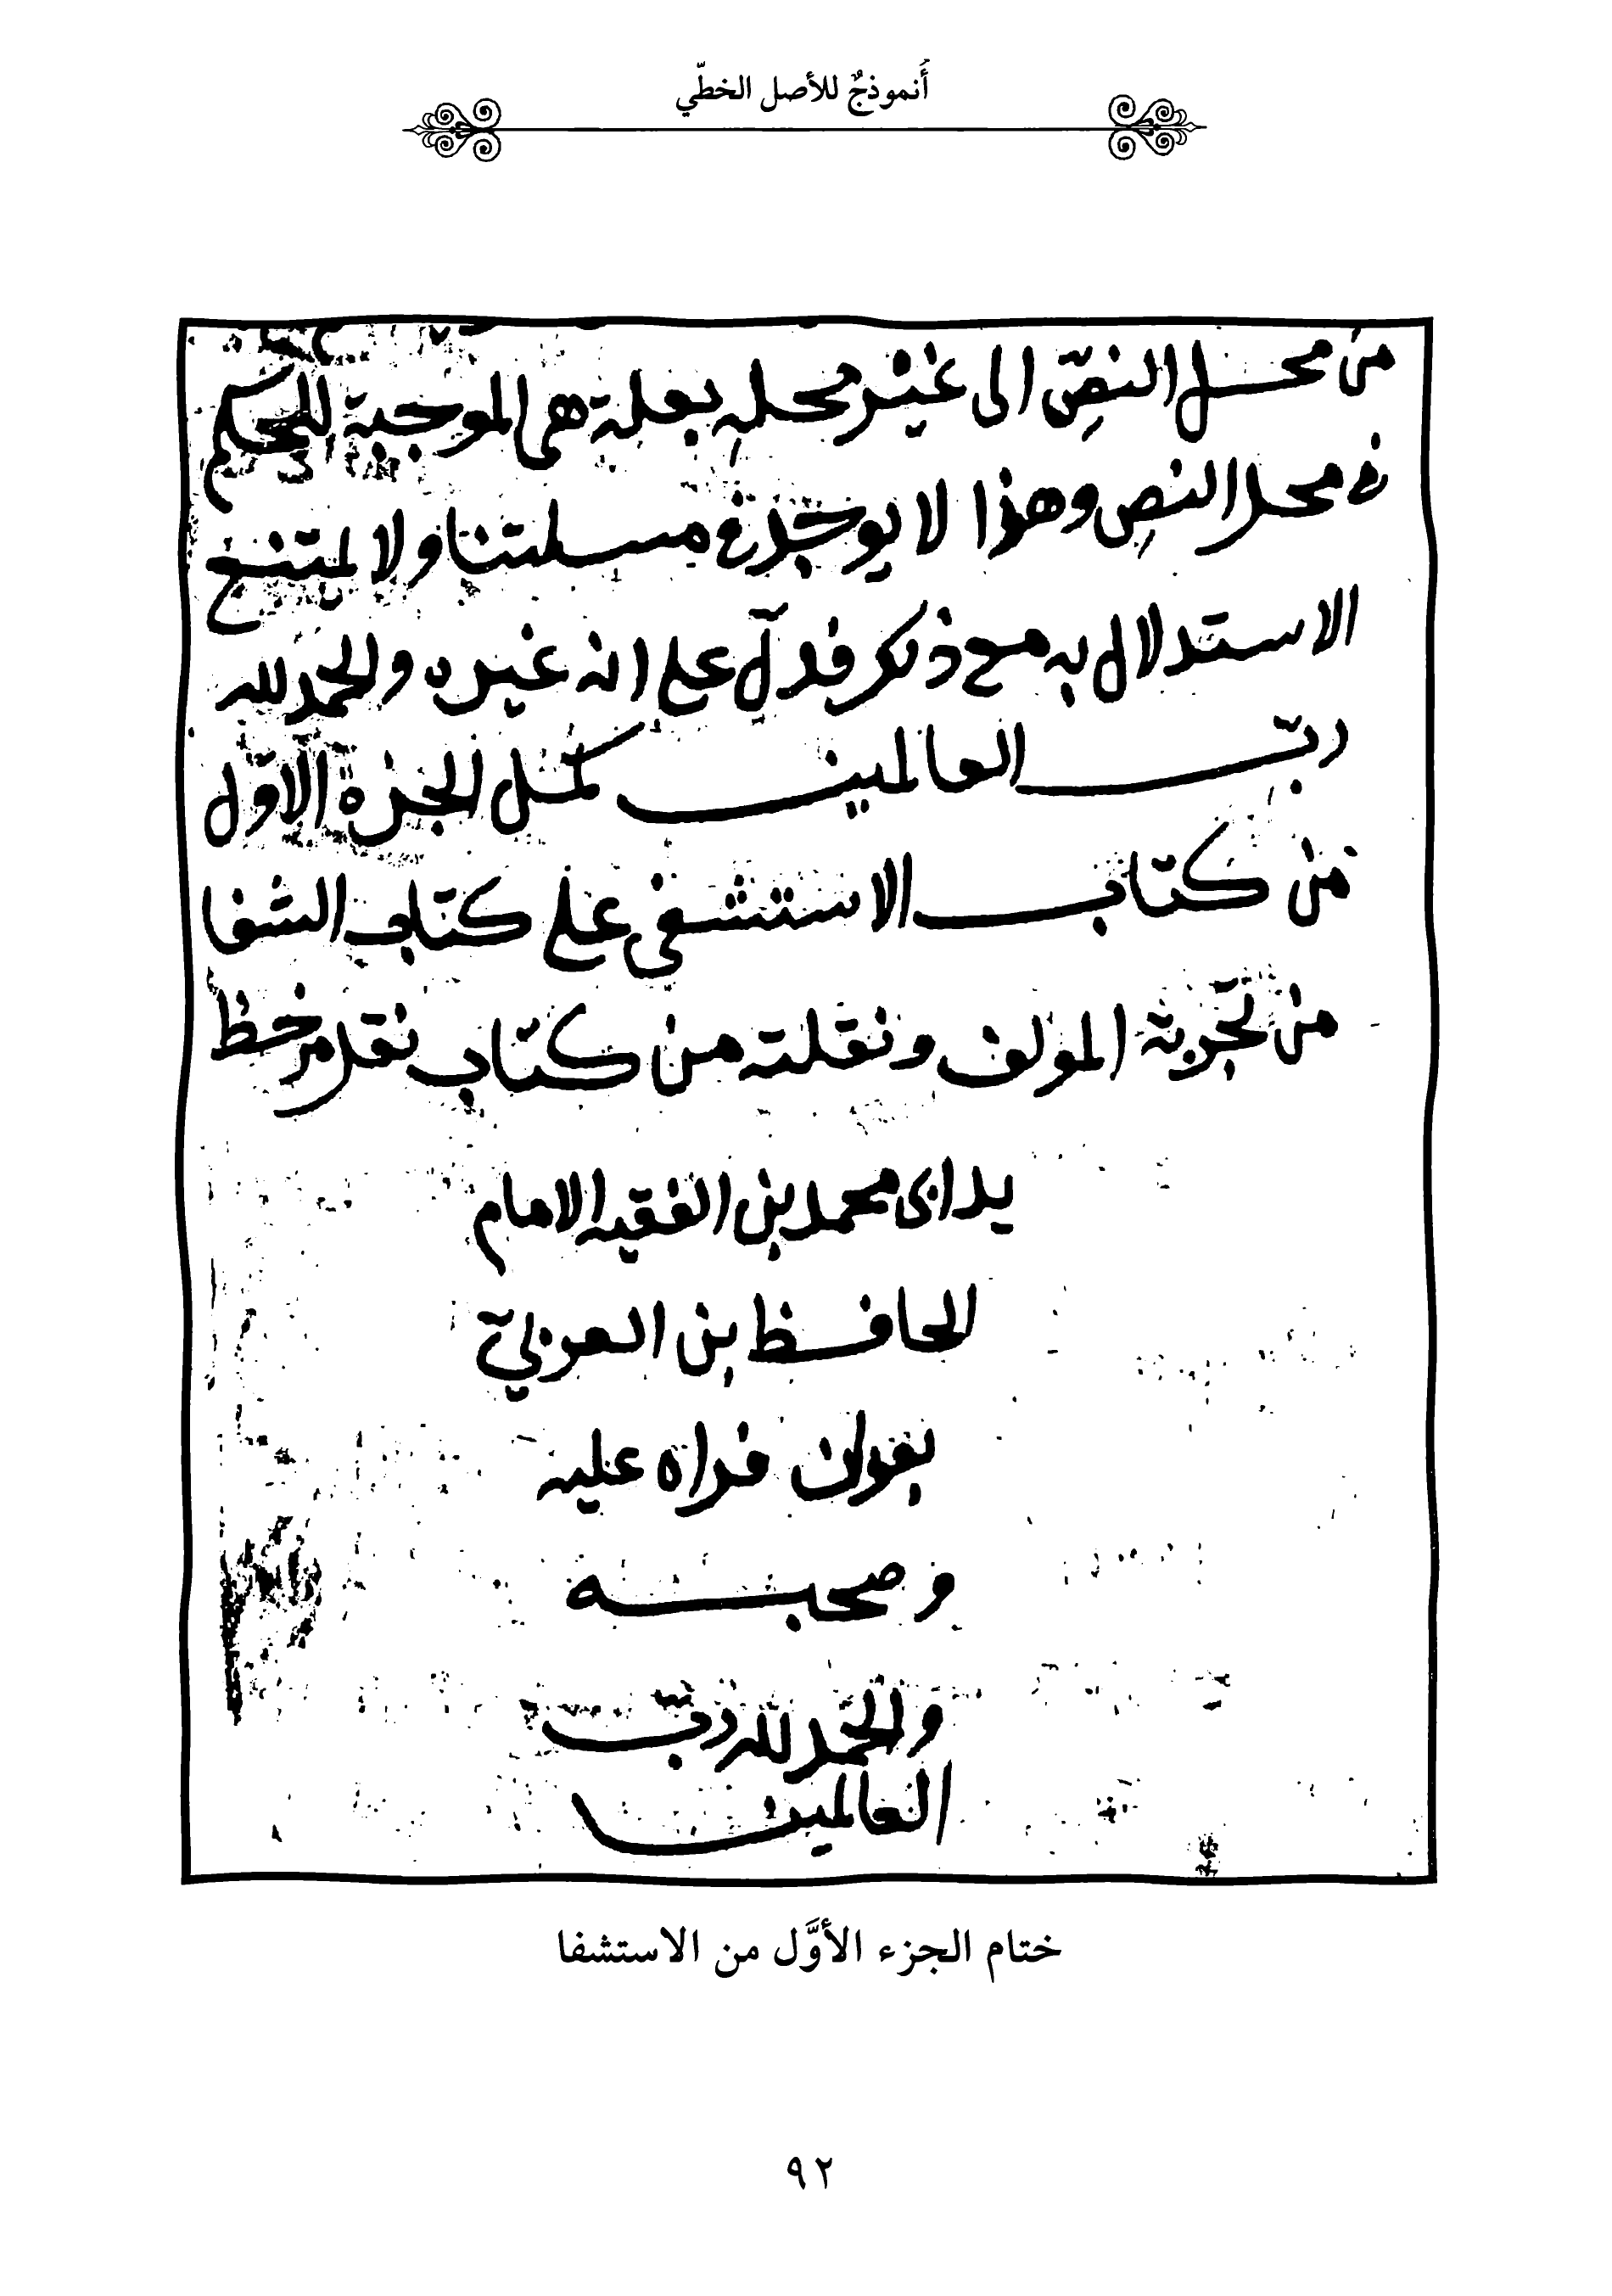 أَنموذجٌ للأصل الخطّي
من محل النصّ الى غير محله بعلة هى الموجبة للحكم
في محل النص وهذا لا يوجد في مسلتنا ولا يمتنع
الاستدلال به مع ذلك فدلّ على انه غيره والحمد لله
ربّ العالمين كمل الجزء الاوّل
من كتاب الاستشفى على كتاب الشفا
من تجربة المولف ونقلته من كتاب نقل من خط
يد ابى محمد بن الفقيه الامام
الحافظ بن
قراه عليه
وصحبه
والحمد لله ربّ
العالمين
ختام الجزء الأوَّل من الاستشفا
٩٢